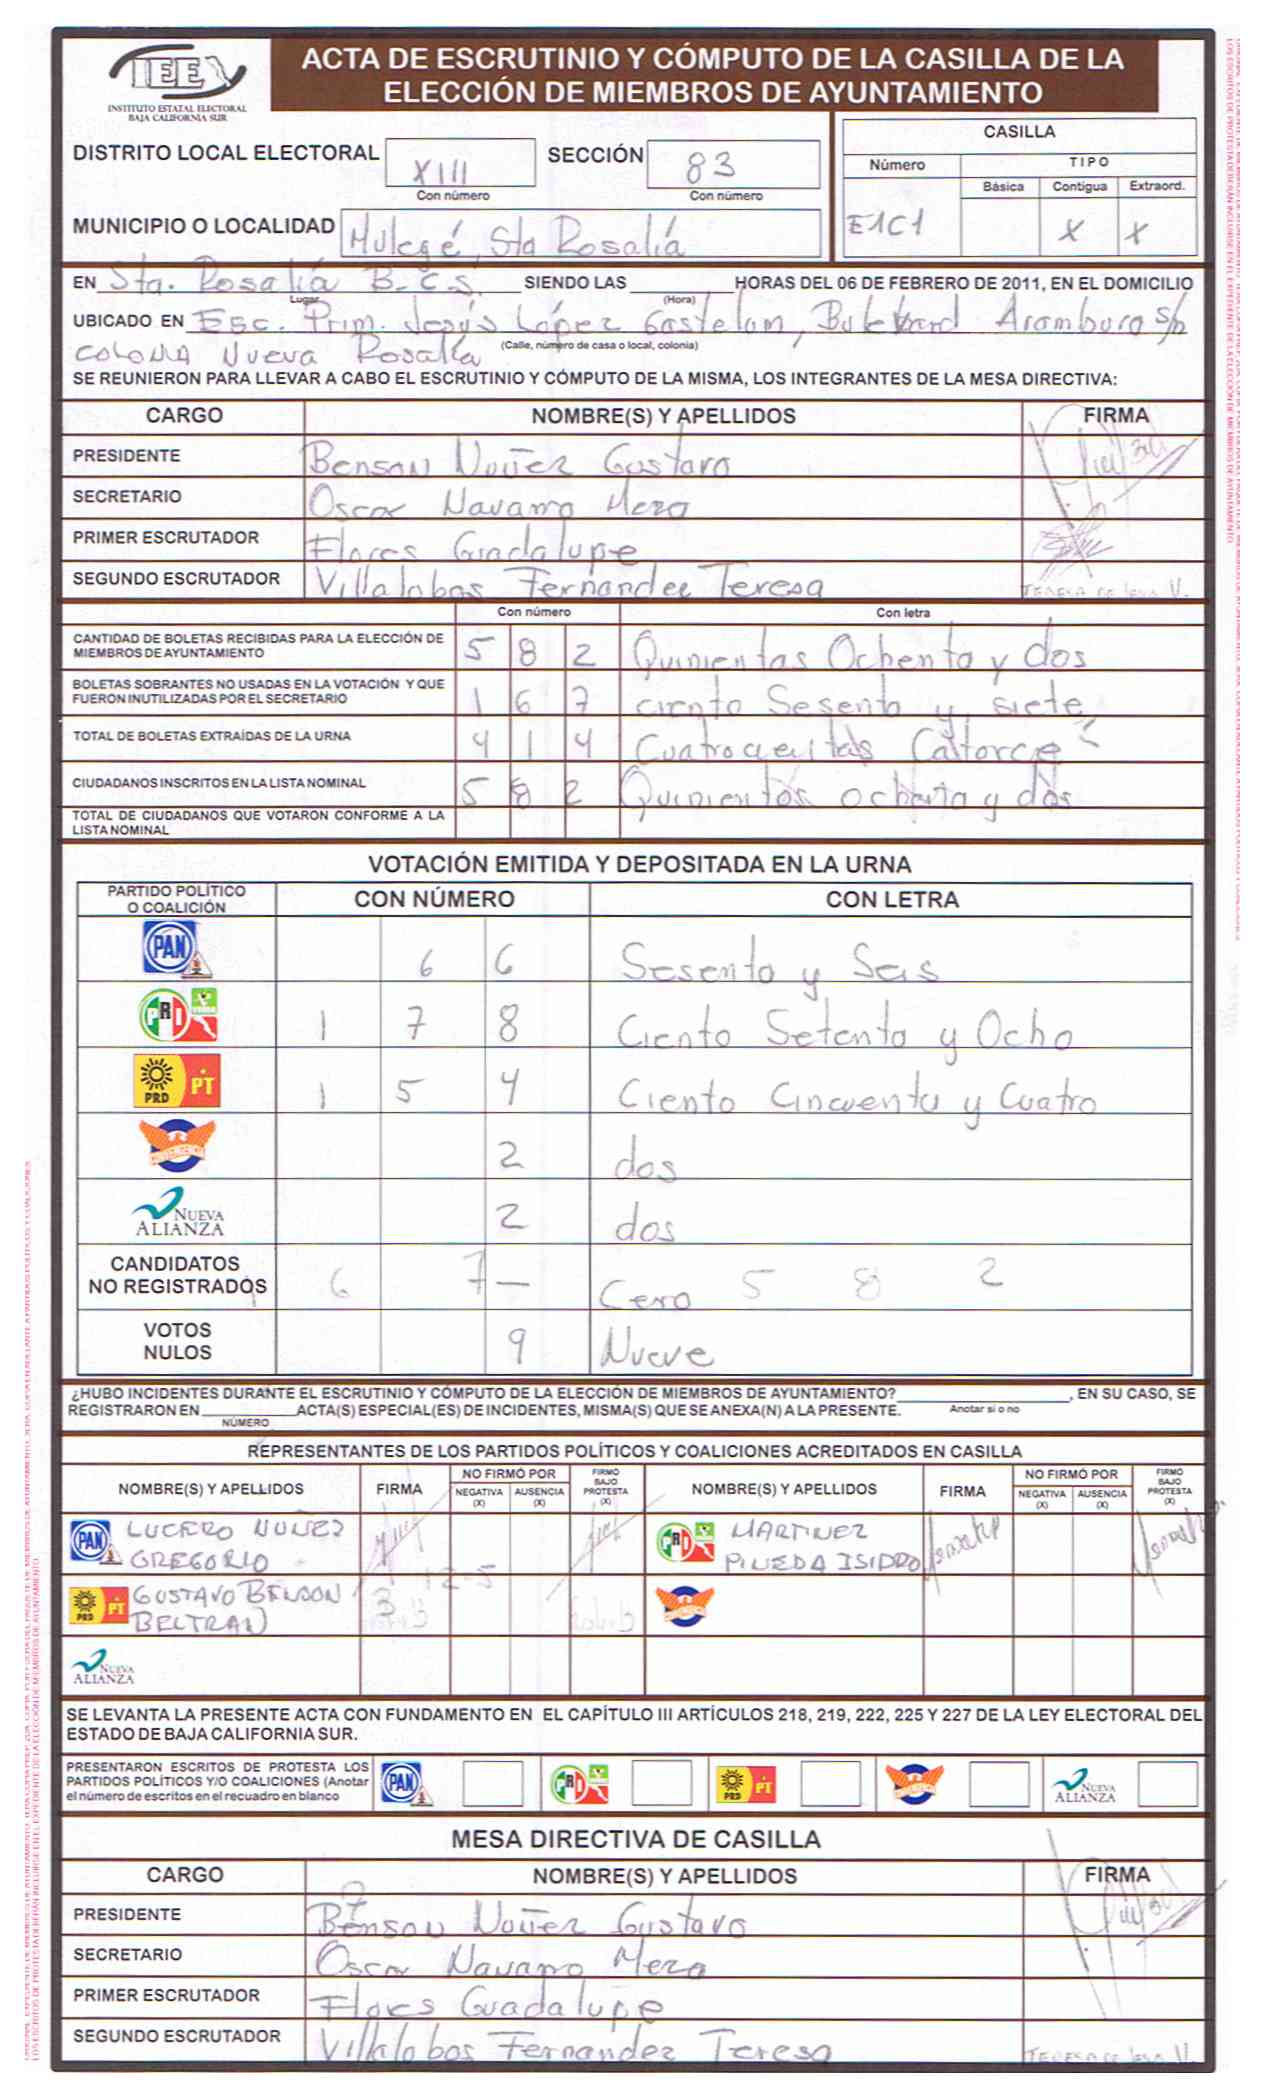 IEE
INSTITUTO ESTATAL ELECTORAL
BAJA CALIFORNIA SUR
ACTA DE ESCRUTINIO Y CÓMPUTO DE LA CASILLA DE LA
ELECCIÓN DE MIEMBROS DE AYUNTAMIENTO
DISTRITO LOCAL ELECTORAL XIII SECCIÓN 83
Con número Con número
MUNICIPIO O LOCALIDAD Mulegé, Sta Rosalía
CASILLA
Número TIPO
Básica Contigua Extraord.
E1C1 X X
EN Sta. Rosalía B.C.S. SIENDO LAS HORAS DEL 06 DE FEBRERO DE 2011, EN EL DOMICILIO
Lugar (Hora)
UBICADO EN Esc. Prim. Jesús López Gastelum, Bulevard Aramburo s/n
(Calle, número de casa o local, colonia)
COLONIA Nueva Rosalía
SE REUNIERON PARA LLEVAR A CABO EL ESCRUTINIO Y CÓMPUTO DE LA MISMA, LOS INTEGRANTES DE LA MESA DIRECTIVA:
CARGO NOMBRE(S) Y APELLIDOS FIRMA
PRESIDENTE Benson Nuñez Gustavo
SECRETARIO Oscar Navarro Meza
PRIMER ESCRUTADOR Flores Guadalupe
SEGUNDO ESCRUTADOR Villalobos Fernandez Teresa TERESA DE V.
Con número Con letra
CANTIDAD DE BOLETAS RECIBIDAS PARA LA ELECCIÓN DE
MIEMBROS DE AYUNTAMIENTO 5 8 2 Quinientas Ochenta y dos
BOLETAS SOBRANTES NO USADAS EN LA VOTACIÓN Y QUE
FUERON INUTILIZADAS POR EL SECRETARIO 1 6 7 ciento Sesenta y siete
TOTAL DE BOLETAS EXTRAÍDAS DE LA URNA 4 1 4 Cuatrocientas Catorce
CIUDADANOS INSCRITOS EN LA LISTA NOMINAL 5 8 2 Quinientos ochenta y dos
TOTAL DE CIUDADANOS QUE VOTARON CONFORME A LA
LISTA NOMINAL
VOTACIÓN EMITIDA Y DEPOSITADA EN LA URNA
PARTIDO POLÍTICO
O COALICIÓN CON NÚMERO CON LETRA
PAN 6 6 Sesenta y Seis
PRI 1 7 8 Ciento Setenta y Ocho
PRD PT 1 5 4 Ciento Cincuenta y Cuatro
CONVERGENCIA 2 dos
NUEVA ALIANZA 2 dos
CANDIDATOS
NO REGISTRADOS 1 6 7 — Cero 5 8 2
VOTOS
NULOS 9 Nueve
¿HUBO INCIDENTES DURANTE EL ESCRUTINIO Y CÓMPUTO DE LA ELECCIÓN DE MIEMBROS DE AYUNTAMIENTO? , EN SU CASO, SE
REGISTRARON EN ACTA(S) ESPECIAL(ES) DE INCIDENTES, MISMA(S) QUE SE ANEXA(N) A LA PRESENTE. Anotar si o no
NÚMERO
REPRESENTANTES DE LOS PARTIDOS POLÍTICOS Y COALICIONES ACREDITADOS EN CASILLA
NOMBRE(S) Y APELLIDOS FIRMA NO FIRMÓ POR NEGATIVA (X) AUSENCIA (X) FIRMÓ BAJO PROTESTA (X) NOMBRE(S) Y APELLIDOS FIRMA NO FIRMÓ POR NEGATIVA (X) AUSENCIA (X) FIRMÓ BAJO PROTESTA (X)
PAN LUCERO NUÑEZ PRI MARTINEZ
GREGORIO PINEDA ISIDRO
PRD PT GUSTAVO BENSON
BELTRAN
NUEVA ALIANZA
SE LEVANTA LA PRESENTE ACTA CON FUNDAMENTO EN EL CAPÍTULO III ARTÍCULOS 218, 219, 222, 225 Y 227 DE LA LEY ELECTORAL DEL
ESTADO DE BAJA CALIFORNIA SUR.
PRESENTARON ESCRITOS DE PROTESTA LOS
PARTIDOS POLÍTICOS Y/O COALICIONES (Anotar
el número de escritos en el recuadro en blanco
PAN PRI PRD PT NUEVA ALIANZA
MESA DIRECTIVA DE CASILLA
CARGO NOMBRE(S) Y APELLIDOS FIRMA
PRESIDENTE Benson Nuñez Gustavo
SECRETARIO Oscar Navarro Meza
PRIMER ESCRUTADOR Flores Guadalupe
SEGUNDO ESCRUTADOR Villalobos Fernandez Teresa TERESA DE V.